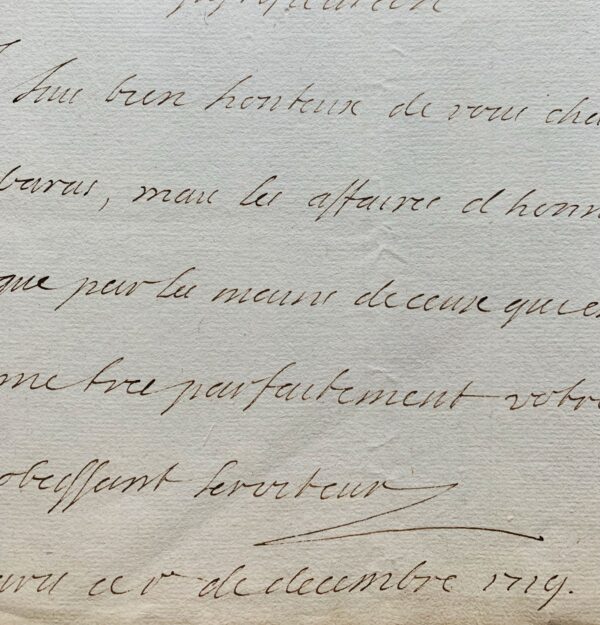 suis bien honteux de vous cha
baras, mais les affaires d honn
que par les mains de ceux qui e
me tres parfaitement votre
obeissant serviteur
aris ce 1r de decembre 1719.